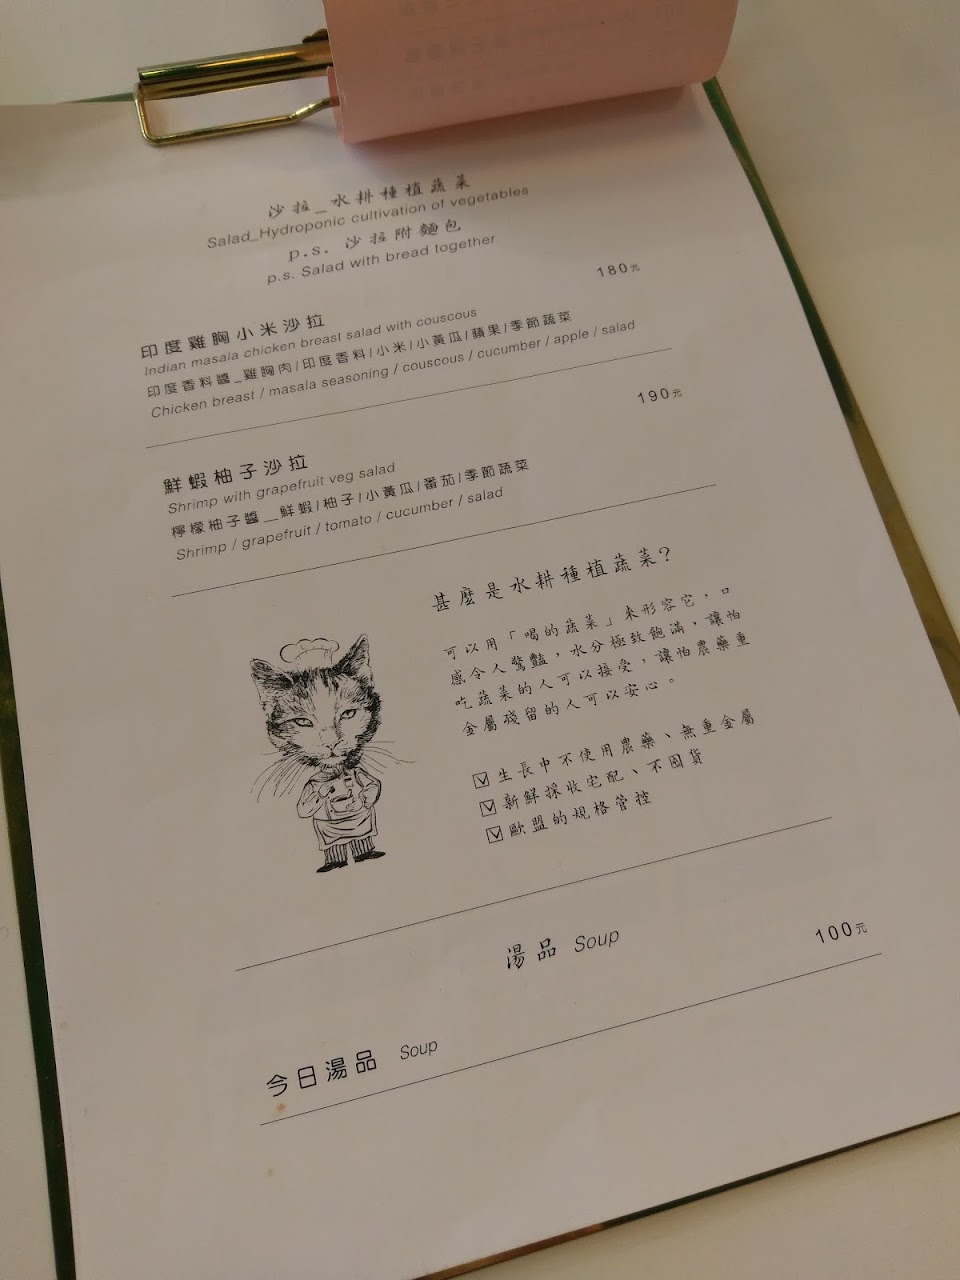 沙拉_水耕種植蔬菜
Salad_Hydroponic cultivation of vegetables
p.s. 沙拉附麵包
p.s. Salad with bread together
180元
印度雞胸小米沙拉
Indian masala chicken breast salad with couscous
印度香料醬_雞胸肉/印度香料/小米/小黃瓜/蘋果/季節蔬菜
Chicken breast / masala seasoning / couscous / cucumber / apple / salad
190元
鮮蝦柚子沙拉
Shrimp with grapefruit veg salad
檸檬柚子醬__鮮蝦/柚子/小黃瓜/番茄/季節蔬菜
Shrimp / grapefruit / tomato / cucumber / salad
甚麼是水耕種植蔬菜?
可以用「喝的蔬菜」來形容它，口
感令人驚豔，水分極致飽滿，讓怕
吃蔬菜的人可以接受，讓怕農藥重
金屬殘留的人可以安心。
生長中不使用農藥、無重金屬
新鮮採收宅配、不囤貨
歐盟的規格管控
湯品 Soup
100元
今日湯品 Soup